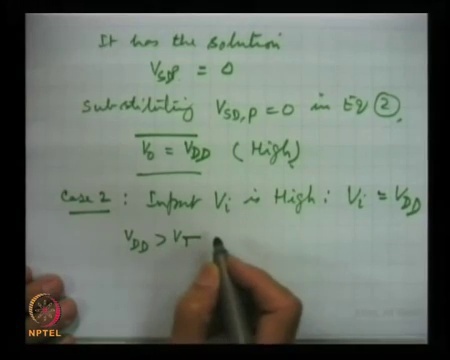 It has the solution
V_SDP = 0
Substituting V_SD,P = 0 in Eq ②,
V_0 = V_DD (High)
Case 2 : Input V_i is High : V_i = V_DD
V_DD > V_T
NPTEL